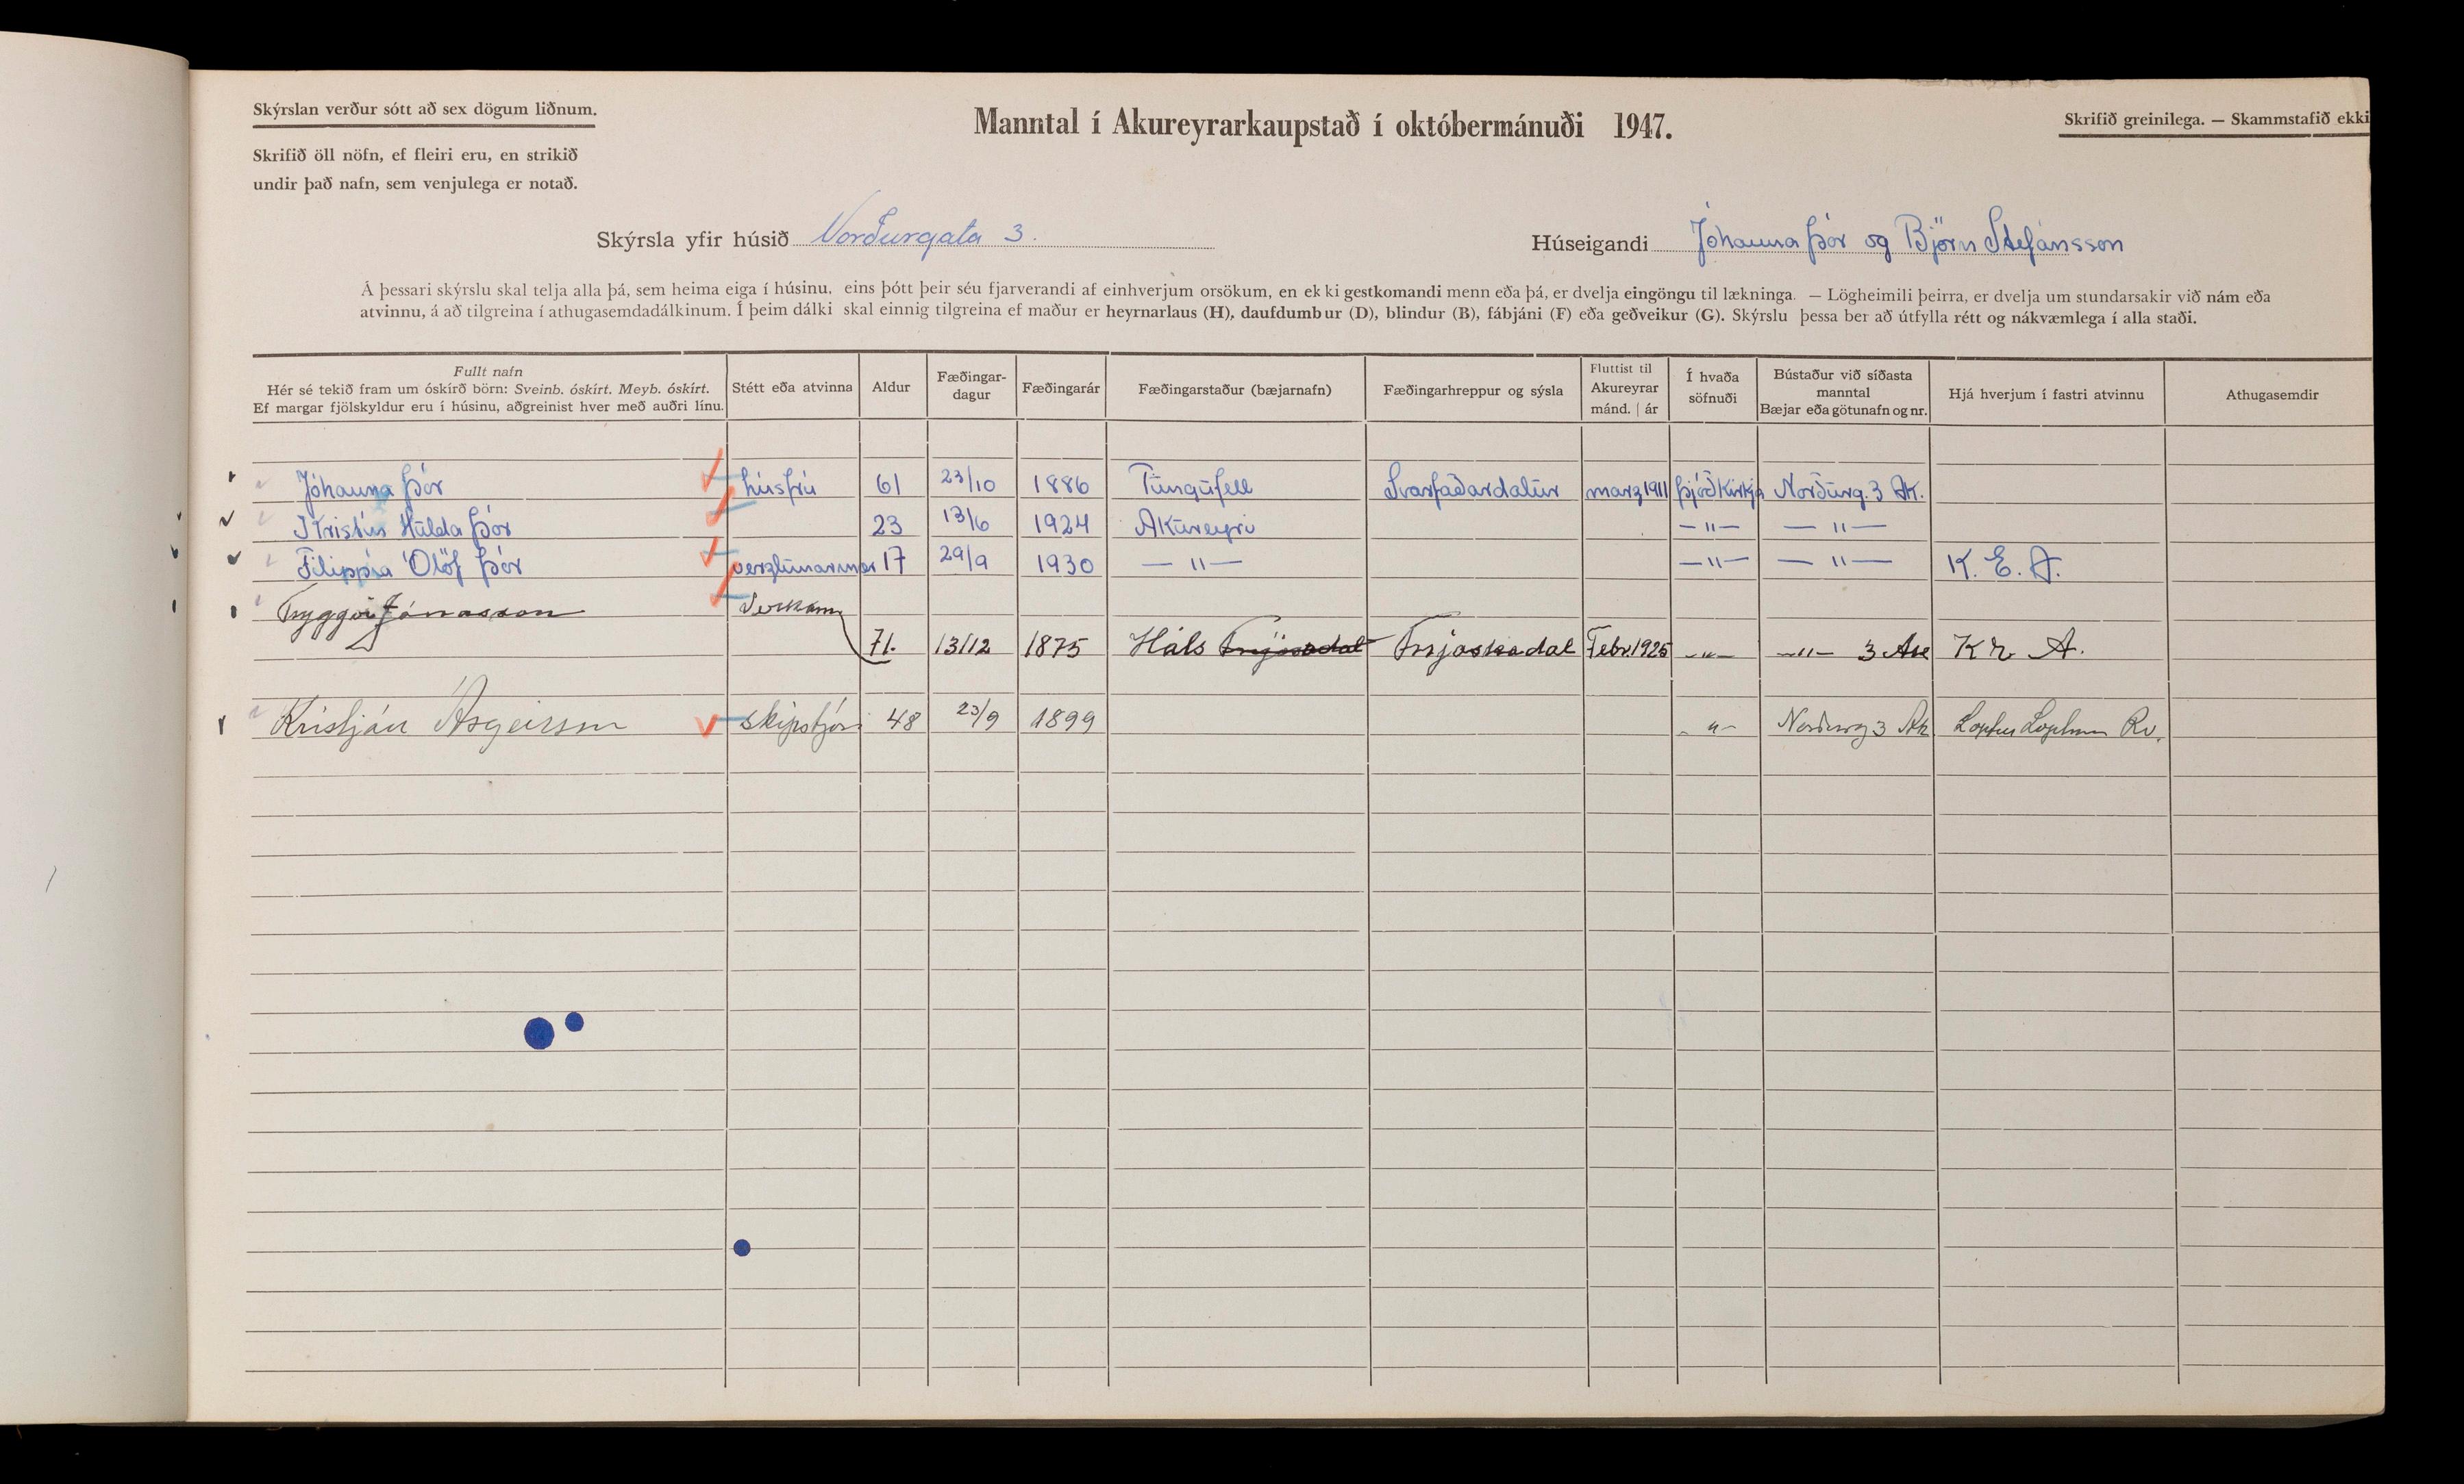 Skýrslan verður sótt að sex dögum liðnum.
Manntal í Akureyrarkaupstað í októbermánuði 1947.
Skrifið greinilega. — Skammstafið ekki
Skrifið öll nöfn, ef fleiri eru, en strikið
undir það nafn, sem venjulega er notað.
Skýrsla yfir húsið Norðurgata 3.
Húseigandi Jóhanna Þór og Björn Stefánsson
Á þessari skýrslu skal telja alla þá, sem heima eiga í húsinu, eins þótt þeir séu fjarverandi af einhverjum orsökum, en ekki gestkomandi menn eða þá, er dvelja eingöngu til lækninga. — Lögheimili þeirra, er dvelja um stundarsakir við nám eða
atvinnu, á að tilgreina í athugasemdadálkinum. Í þeim dálki skal einnig tilgreina ef maður er heyrnarlaus (H), daufdumbur (D), blindur (B), fábjáni (F) eða geðveikur (G). Skýrslu þessa ber að útfylla rétt og nákvæmlega í alla staði.
Fullt nafn
Hér sé tekið fram um óskírð börn: Sveinb. óskírt. Meyb. óskírt.
Ef margar fjölskyldur eru í húsinu, aðgreinist hver með auðri línu.
Stétt eða atvinna
Aldur
Fæðingar-
dagur
Fæðingarár
Fæðingarstaður (bæjarnafn)
Fæðingarhreppur og sýsla
Fluttist til
Akureyrar
mánd. | ár
Í hvaða
söfnuði
Bústaður við síðasta
manntal
Bæjar eða götunafn og nr.
Hjá hverjum í fastri atvinnu
Athugasemdir
Jóhanna Þór húsfrú 61 23/10 1886 Tungufell Svarfaðardalur marz 1911 Þjóðkirkja Norðurg. 3 Ak.
Kristín Hulda Þór 23 13/6 1924 Akureyri — " — — " —
Filippía Ólöf Þór verzlunarmær 17 29/9 1930 — " — — " — — " — K. E. A.
Tryggvi Jónasson Verkam
71. 13/12 1875 Háls Fnjóskadal Fnjoskadal Febr. 1925 - " - - " - 3 Ak K A.
Kristján Ásgeirsson skipstjóri 48 23/9 1899 - " - Norðurg 3 Ak Loptur Loptsson Rv.